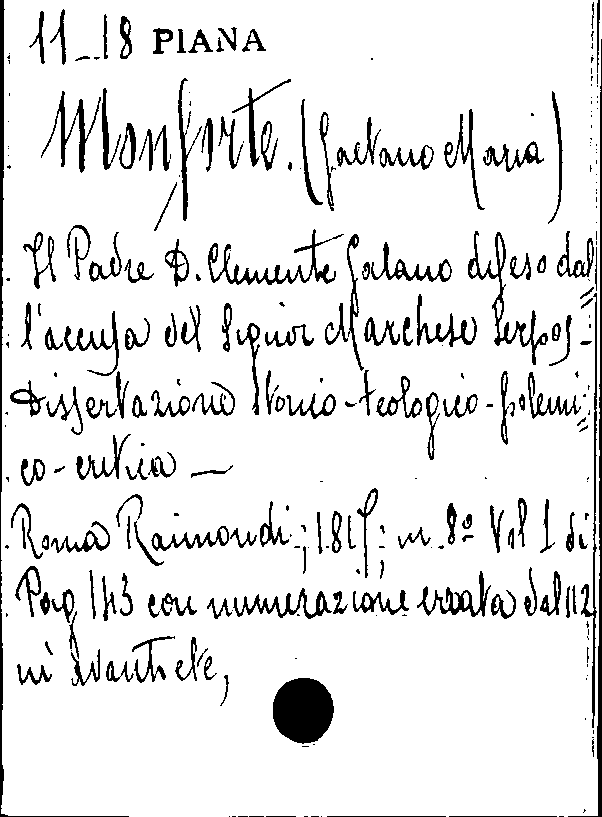 11_18 PIANA
Monforte. (Gaetano Maria)
Il Padre D. Clemente Galano difeso dal=
l'accusa del Signor Marchese Serpos-
Dissertazione storico-teologico-polemi=
co-critica —
Roma Raimondi; 1817; in 8º Vol 1 di
Pag 143 con numerazione errata dal 112
in avanti